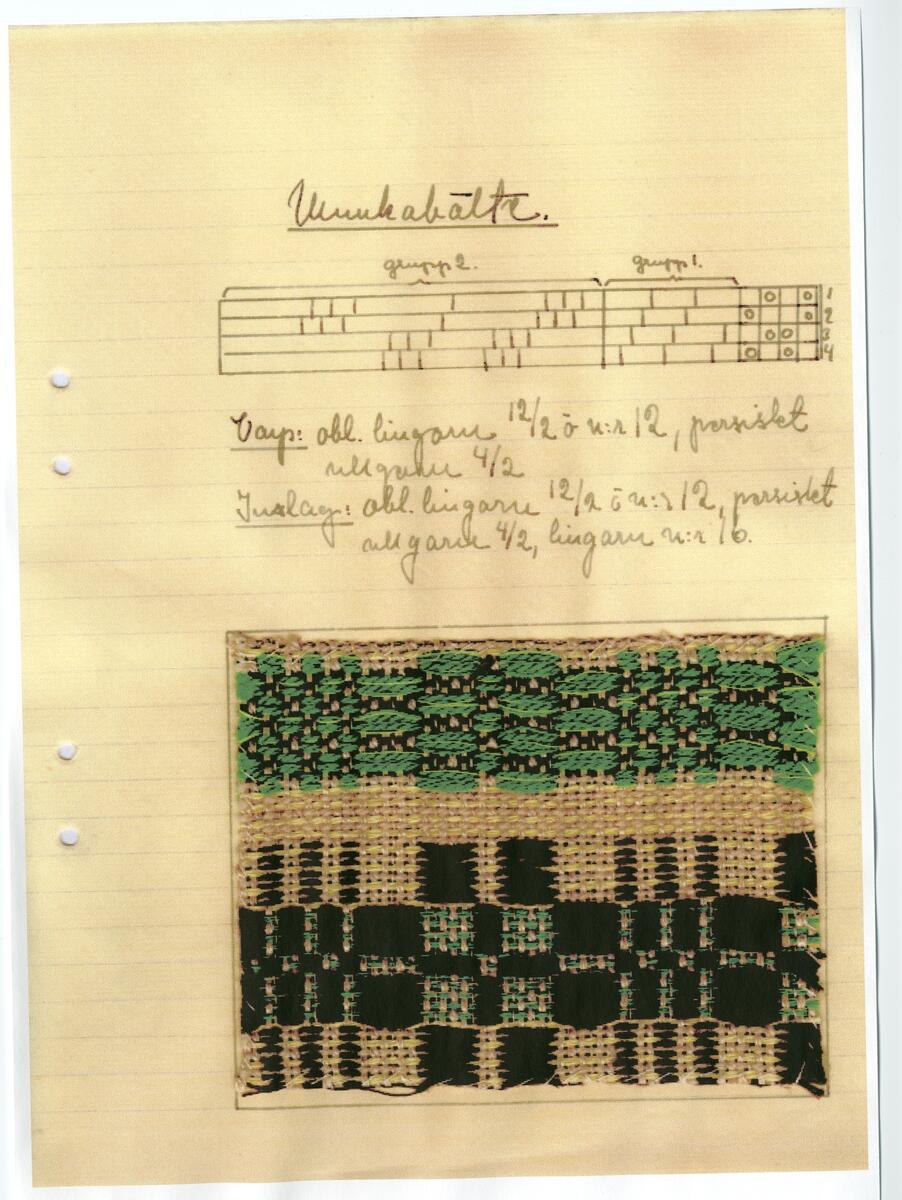 Munkabälte.
grupp 2. grupp 1.
1
2
3
4
Varp: obl. lingarn 12/2 o n:r 12, persiskt
ullgarn 4/2
Inslag: obl. lingarn 12/2 o n:r 12, persiskt
ullgarn 4/2, lingarn n:r 16.